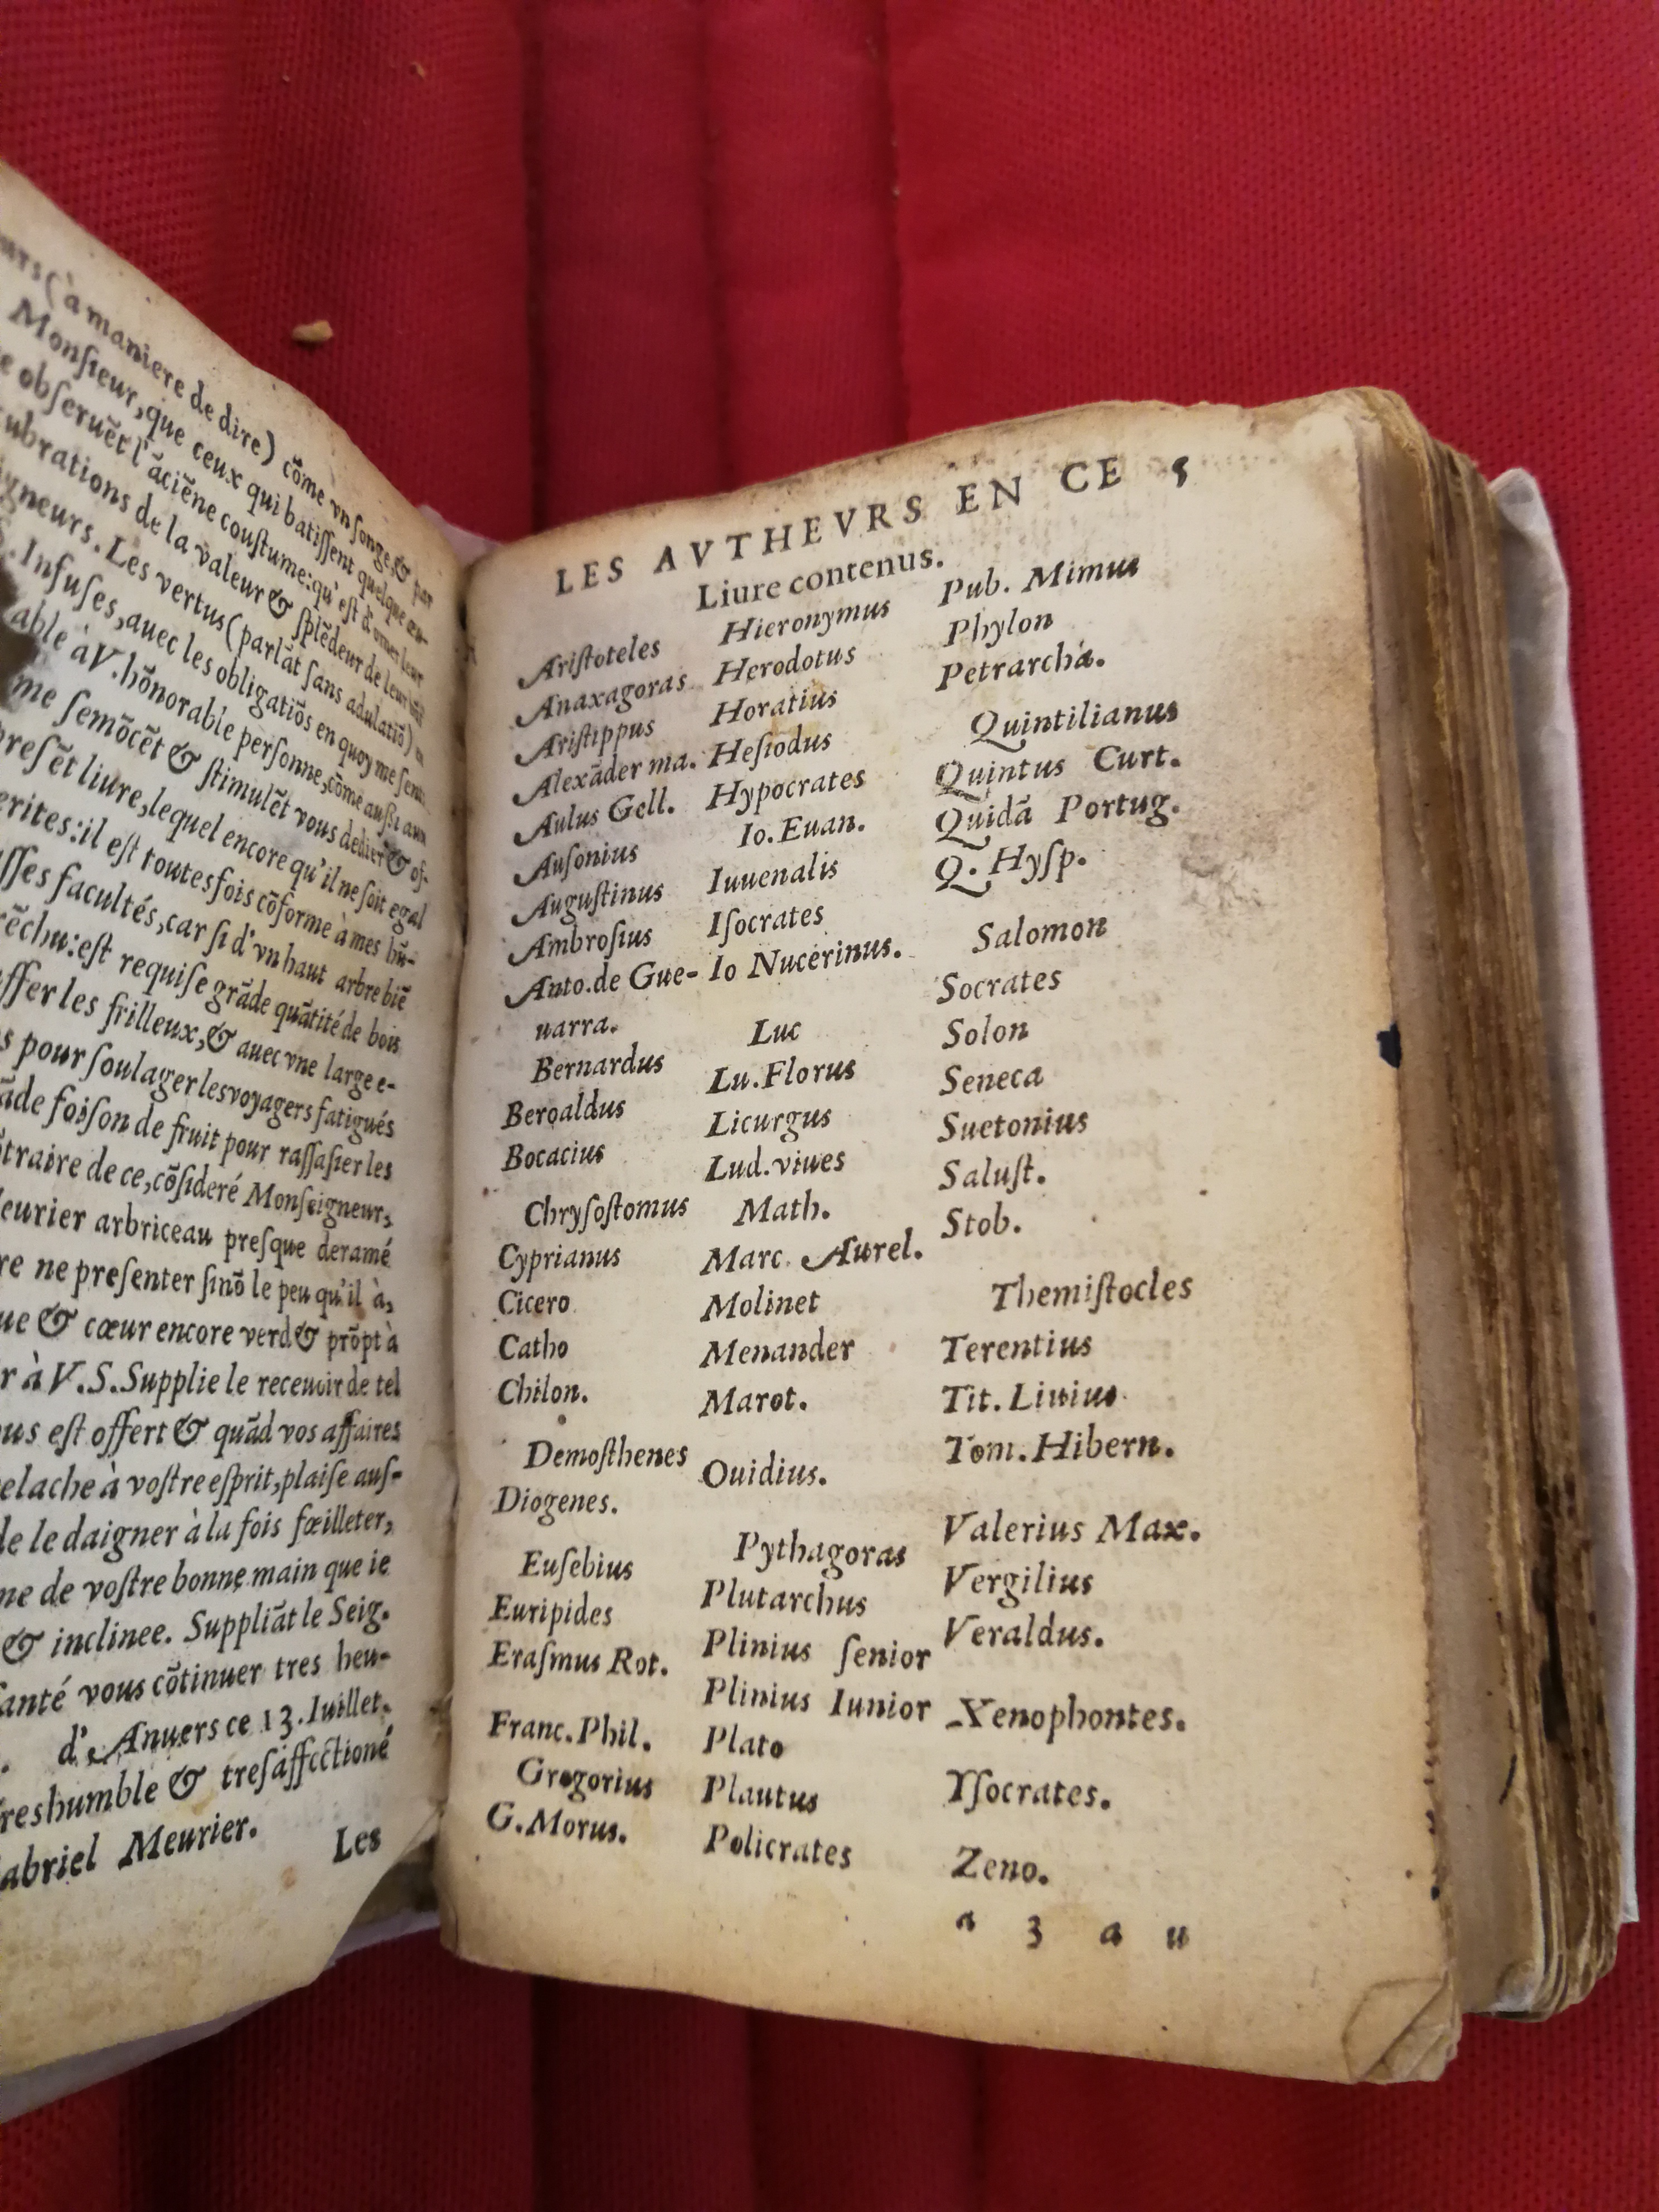 (à maniere de dire) cõme vn songe & par
Monsieur, que ceux qui batissent quelque
obseruẽt l'āciēne coustume: qu'est d'orner leur
ubrations de la valeur & splēdeur de leur
igneurs. Les vertus (parlāt sans adulatiõ)
. Infuses, auec les obligatiõs en quoy me
able à V. hõnorable personne, cõme aussi aux
me semõcēt & stimulēt vous dedier & of-
presēt liure, lequel encore qu'il ne soit egal
erites: il est toutesfois cõforme à mes hū-
sses facultés, car si d'vn haut arbre biē
rēchu: est requise grāde quātité de bois
ffer les frilleux, & auec vne large e-
s pour soulager les voyagers fatigués
āde foison de fruit pour rassasier les
traire de ce, cõsideré Monseigneur,
eurier arbriceau presque deramé
re ne presenter sinõ le peu qu'il à,
ue & cœur encore verd & prõpt à
r à V. S. Supplie le receuoir de tel
us est offert & quād vos affaires
elache à vostre esprit, plaise aus-
de le daigner à la fois fœilleter,
me de vostre bonne main que ie
& inclinee. Suppliāt le Seig.
anté vous cõtinuer tres heu-
. d'Anuers ce 13. Iuillet.
reshumble & tresaffectioné
abriel Meurier.
Les
LES AVTHEVRS EN CE 5
Liure contenus.
Aristoteles
Anaxagoras
Aristippus
Alexāder ma.
Aulus Gell.
Ausonius
Augustinus
Ambrosius
Anto. de Gue-
uarra.
Bernardus
Beroaldus
Bocacius
Chrysostomus
Cyprianus
Cicero
Catho
Chilon.
Demosthenes
Diogenes.
Eusebius
Euripides
Erasmus Rot.
Franc. Phil.
Gregorius
G. Morus.
Hieronymus
Herodotus
Horatius
Hesiodus
Hypocrates
Io. Euan.
Iuuenalis
Isocrates
Io Nucerinus.
Luc
Lu. Florus
Licurgus
Lud. viues
Math.
Marc. Aurel.
Molinet
Menander
Marot.
Ouidius.
Pythagoras
Plutarchus
Plinius senior
Plinius Iunior
Plato
Plautus
Policrates
Pub. Mimus
Phylon
Petrarcha.
Quintilianus
Quintus Curt.
Quidā Portug.
Q. Hysp.
Salomon
Socrates
Solon
Seneca
Suetonius
Salust.
Stob.
Themistocles
Terentius
Tit. Liuius
Tom. Hibern.
Valerius Max.
Vergilius
Veraldus.
Xenophontes.
Ysocrates.
Zeno.
a 3 a u